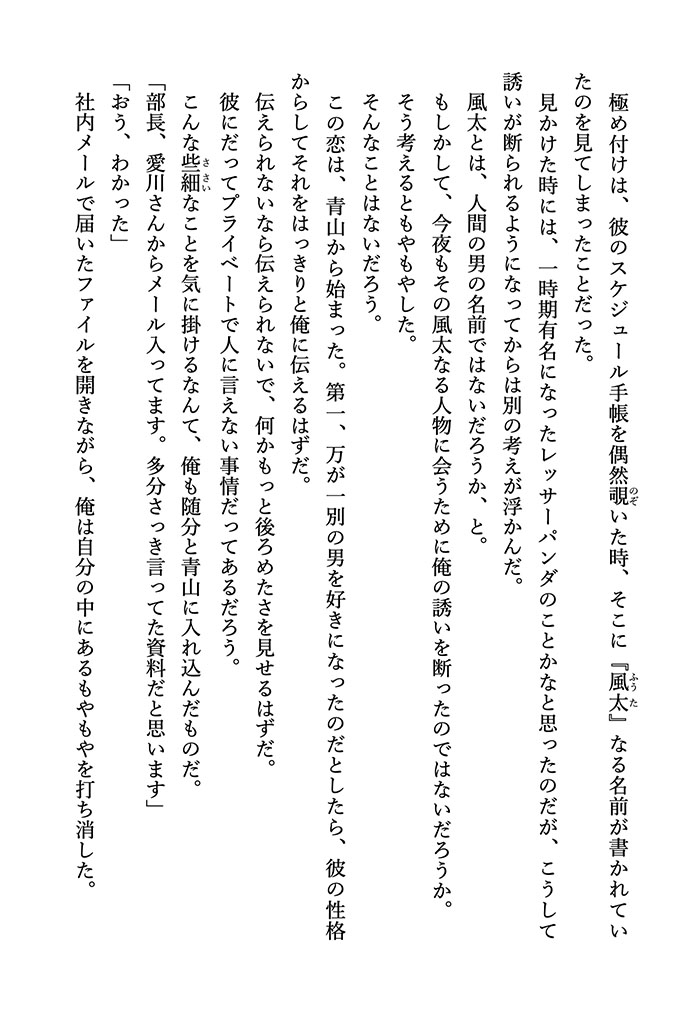 極め付けは、彼のスケジュール手帳を偶然覗いた時、そこに『風太』なる名前が書かれてい
たのを見てしまったことだった。
　見かけた時には、一時期有名になったレッサーパンダのことかなと思ったのだが、こうして
誘いが断られるようになってからは別の考えが浮かんだ。
　風太とは、人間の男の名前ではないだろうか、と。
　もしかして、今夜もその風太なる人物に会うために俺の誘いを断ったのではないだろうか。
　そう考えるともやもやした。
　そんなことはないだろう。
　この恋は、青山から始まった。第一、万が一別の男を好きになったのだとしたら、彼の性格
からしてそれをはっきりと俺に伝えるはずだ。
　伝えられないなら伝えられないで、何かもっと後ろめたさを見せるはずだ。
　彼にだってプライベートで人に言えない事情だってあるだろう。
　こんな些細なことを気に掛けるなんて、俺も随分と青山に入れ込んだものだ。
「部長、愛川さんからメール入ってます。多分さっき言ってた資料だと思います」
「おう、わかった」
　社内メールで届いたファイルを開きながら、俺は自分の中にあるもやもやを打ち消した。